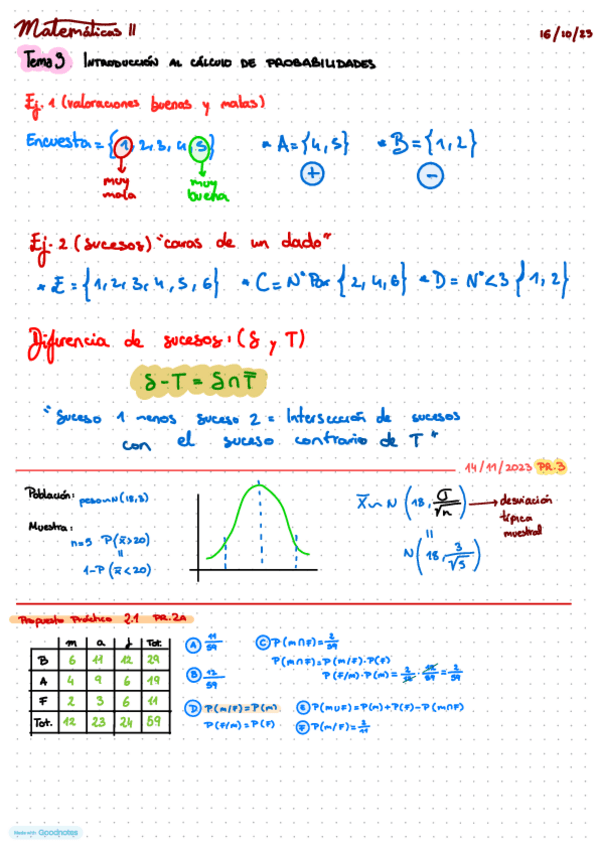 Matemáticas II
16/10/23
Tema 3 INTRODUCCIÓN AL CÁLCULO DE PROBABILIDADES
Ej. 1 (valoraciones buenas y malas)
Encuesta = {1, 2, 3, 4, 5} * A = {4, 5} * B = {1, 2}
muy mala
muy buena
+
-
Ej. 2 (sucesos) "caras de un dado"
* E = {1, 2, 3, 4, 5, 6} * C = Nº Par {2, 4, 6} * D = Nº < 3 {1, 2}
Diferencia de sucesos: (S y T)
S - T = S ∩ T̅
"Suceso 1 menos suceso 2 = Intersección de sucesos
con el suceso contrario de T"
14/11/2023 PR.3
Población: peso ~ N(18,3)
Muestra:
n=5 P(x̅>20)
=
1-P(x̅<20)
X̅ ~ N (18, σ/√n) → desviación
típica
muestral
=
N (18, 3/√5)
Propuesto Práctico 2.1 PR.2A
m a j Tot.
B 6 11 12 29
A 4 9 6 19
F 2 3 6 11
Tot. 12 23 24 59
A 11/59
B 12/59
C P(m∩F)=2/59
P(m∩F)=P(m/F)·P(F)
P(F/m)·P(m) = 2/12 · 12/59 = 2/59
D P(m/F)=P(m)
P(F/m)=P(F)
E P(m∪F)=P(m)+P(F)-P(m∩F)
F P(m/F)=2/11
Made with Goodnotes